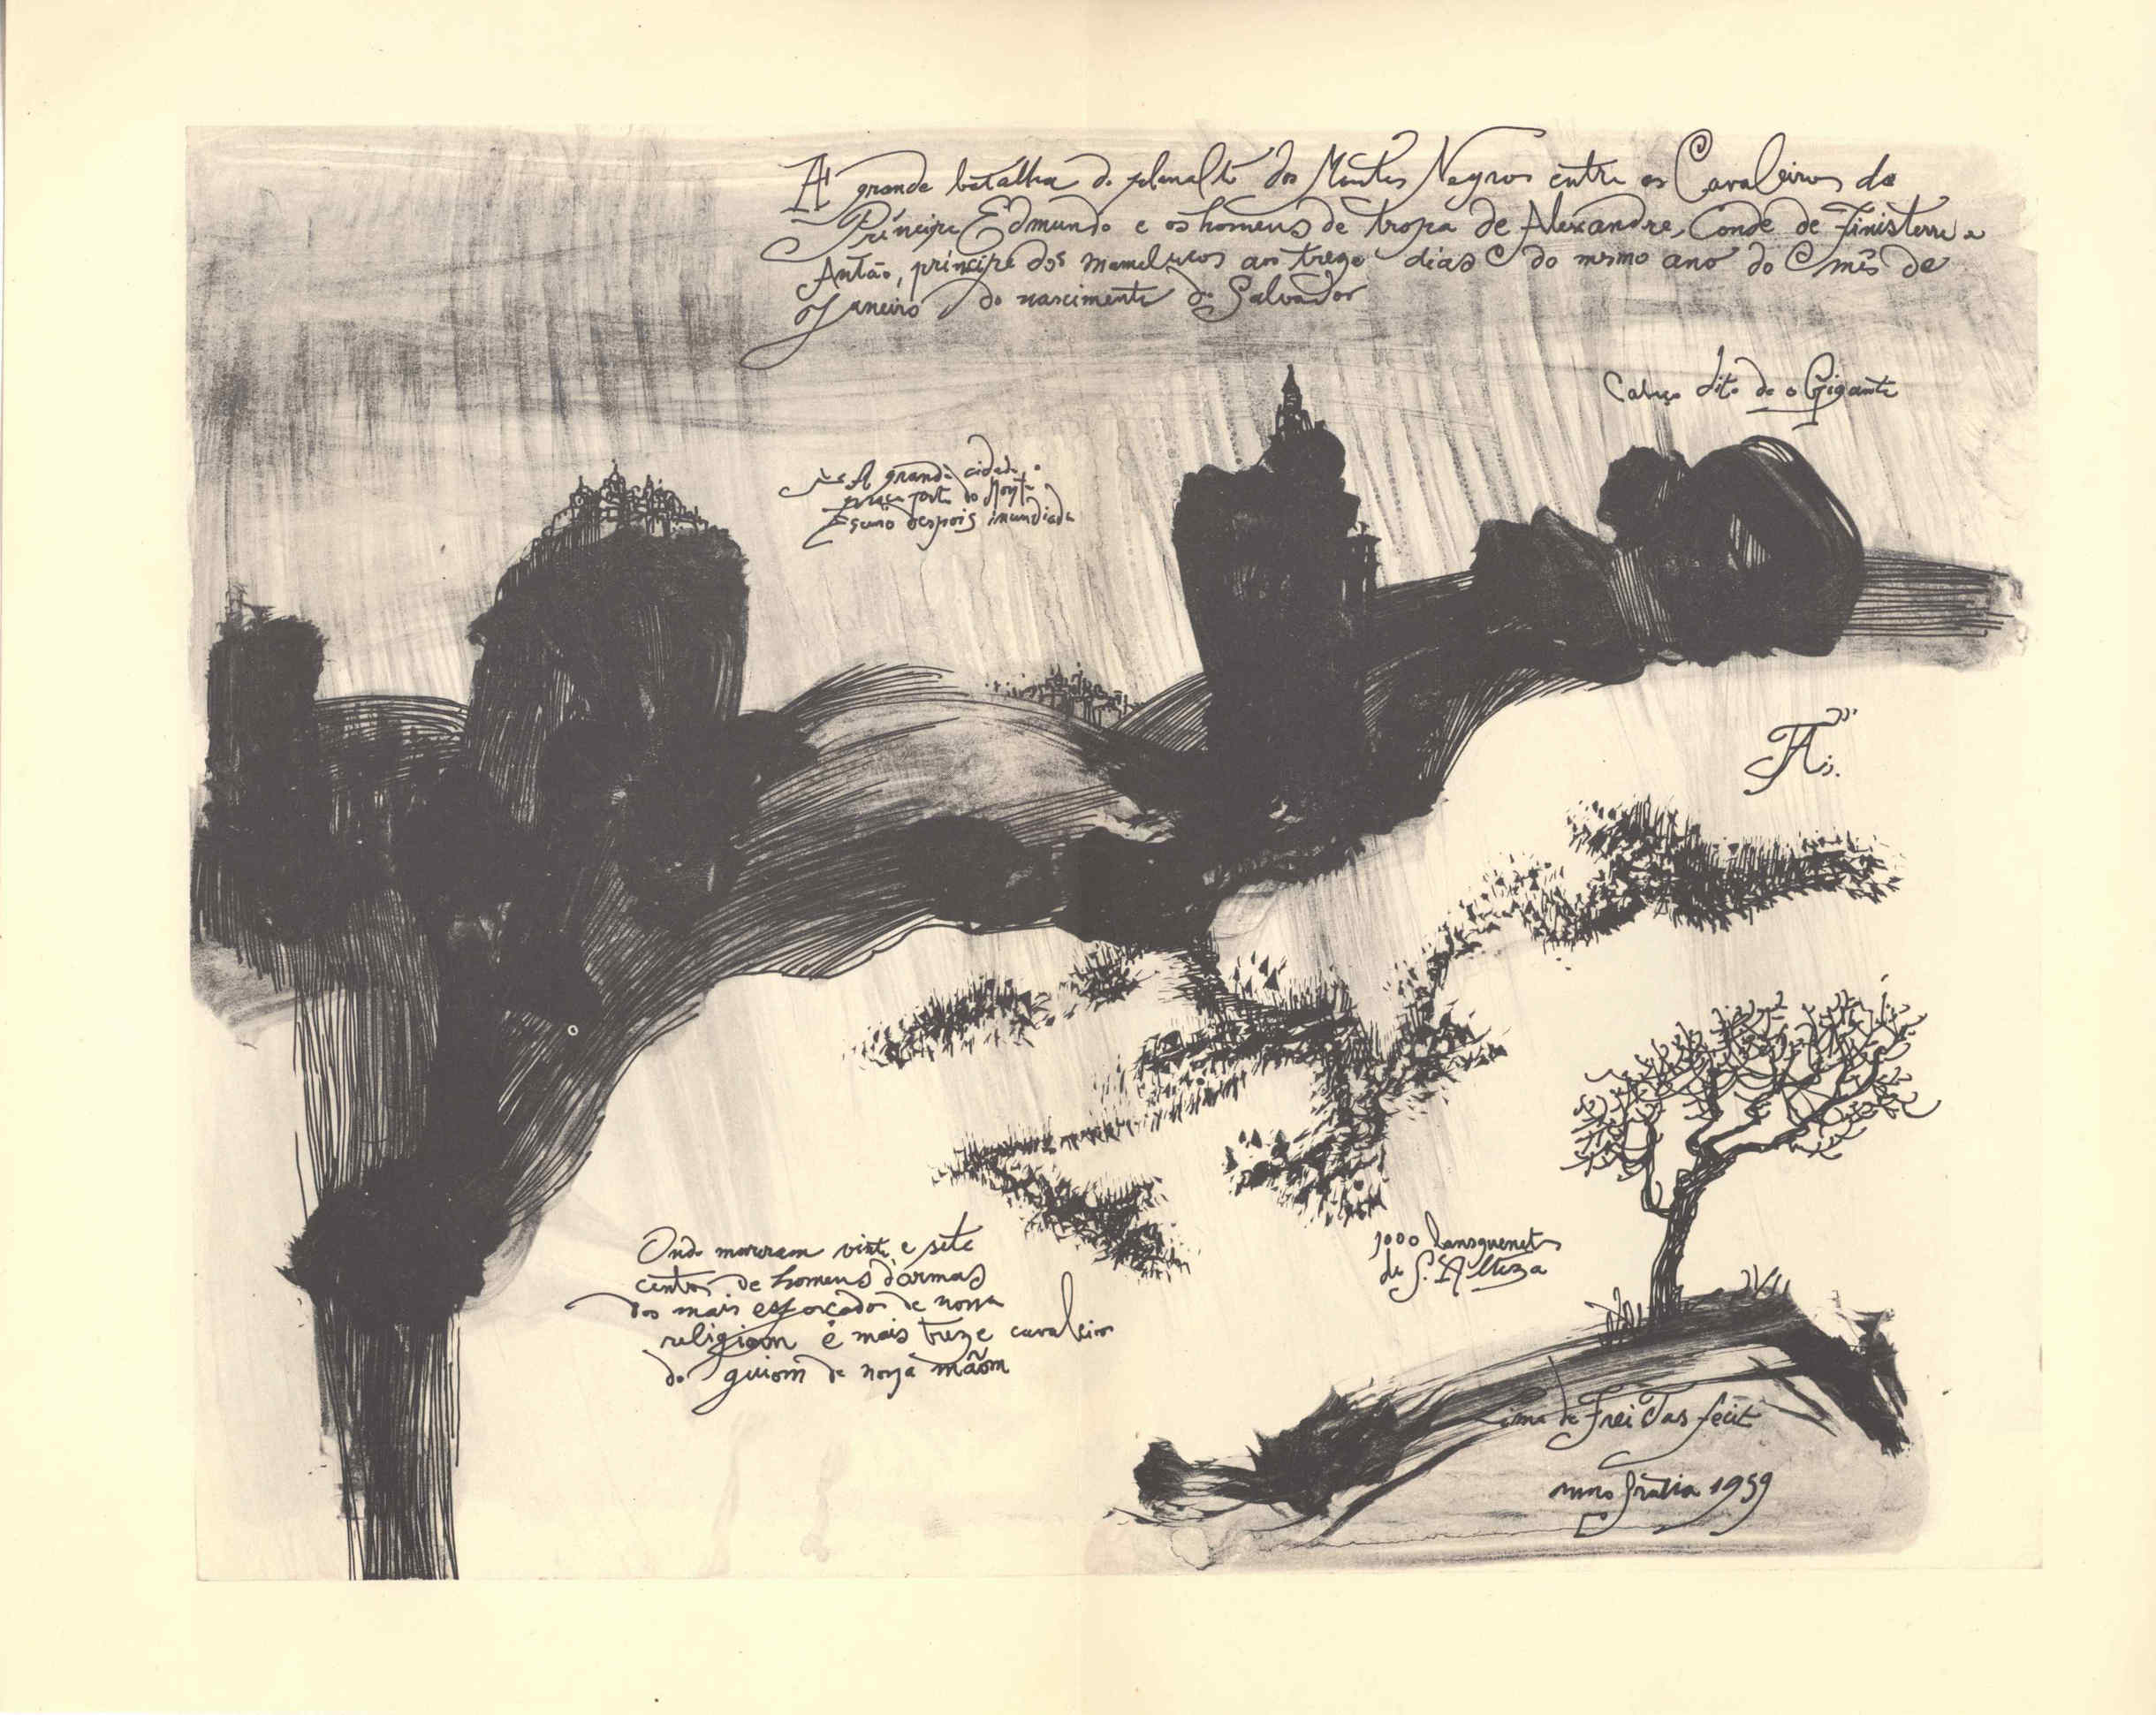 A grande batalha do planalto dos Montes Negros entre os Cavaleiros do
Príncipe Edmundo e os homens de tropa de Alexandre, Conde de Finisterra e
Antão, príncipe dos mamelucos aos treze dias do mesmo ano do mês de
Janeiro do nascimento do Salvador
Cabeço dito do o Gigante
A grande cidade e
praça forte do Monte
Escuro despois inundada
Onde morreram vinte e sete
centos de homens d'armas
dos mais esforçados de nossa
religiom e mais treze cavaleiros
do guiom de nossa mãom
1000 lansquenets
de S. Alteza
Lima de Freitas fecit
1959